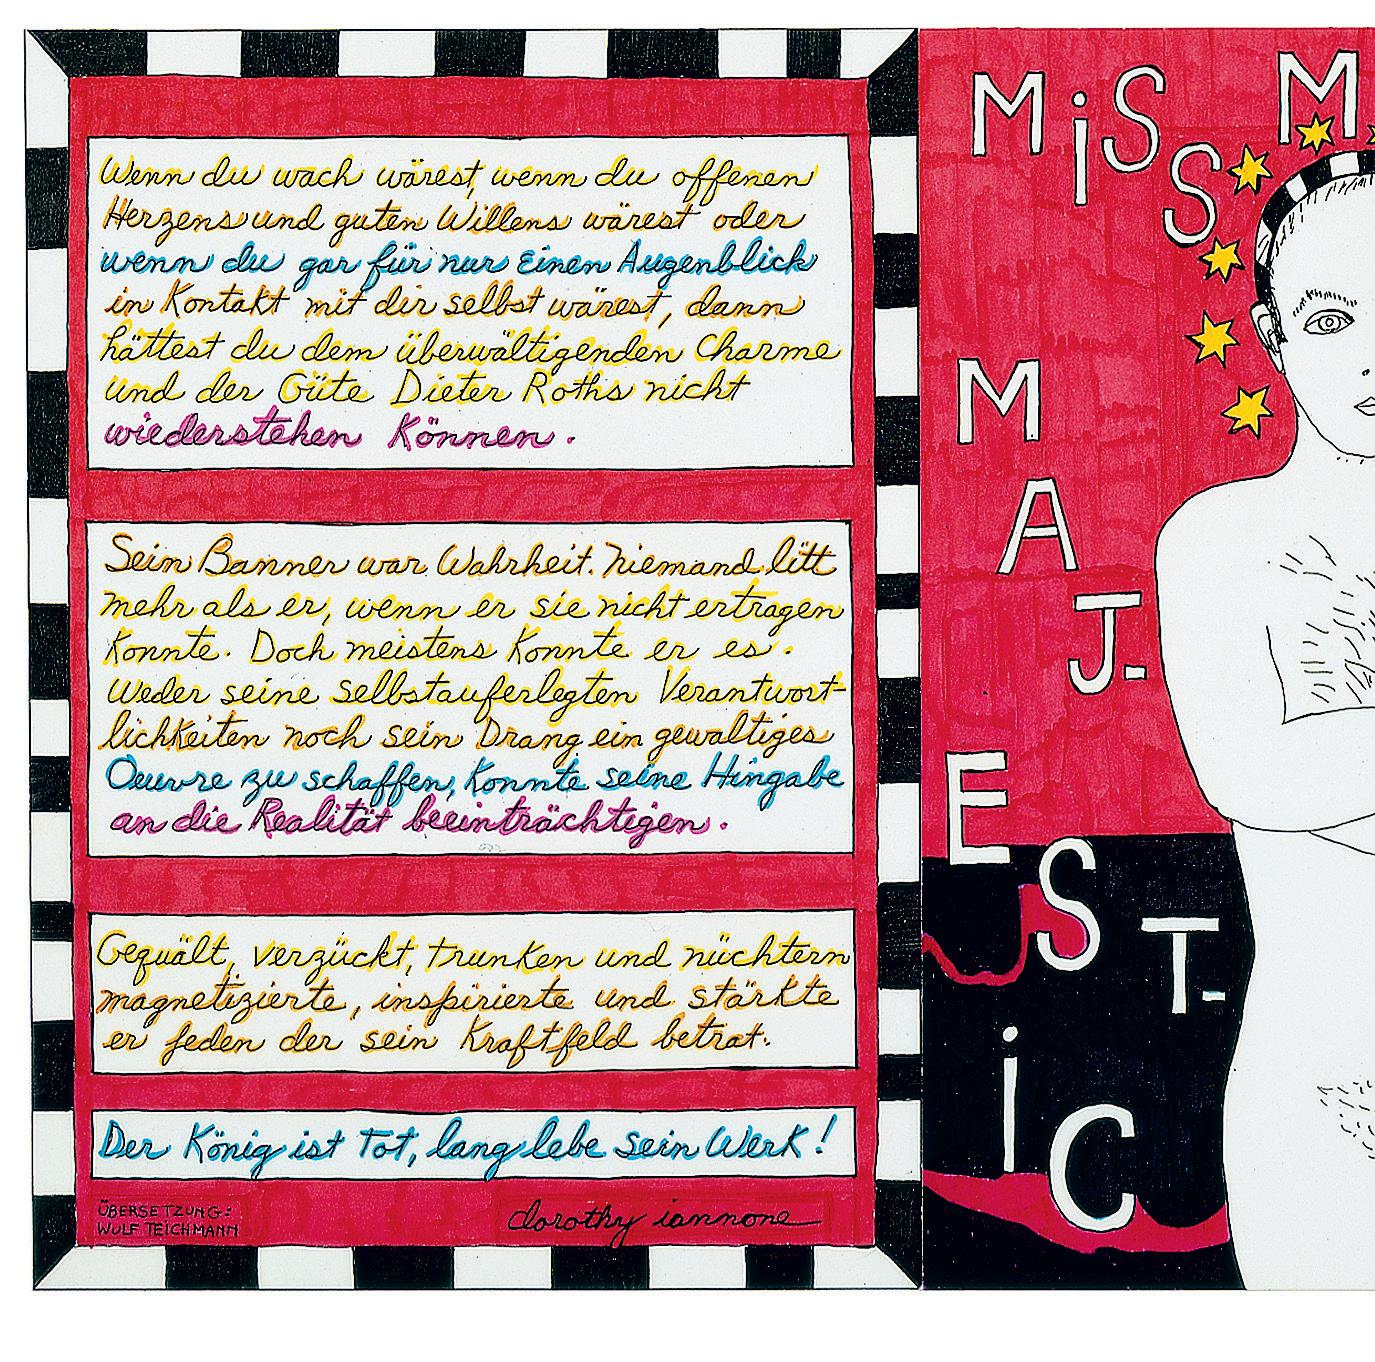 Wenn du wach wärest, wenn du offenen
Herzens und guten Willens wärest oder
wenn du gar für nur Einen Augenblick
in Kontakt mit dir selbst wärest, dann
hättest du dem überwältigenden Charme
und der Güte Dieter Roths nicht
wiederstehen Können.
Sein Banner war Wahrheit. Niemand litt
mehr als er, wenn er sie nicht ertragen
Konnte. Doch meistens Konnte er es.
Weder seine selbstauferlegten Verantwort-
lichkeiten noch sein Drang ein gewaltiges
Oeuvre zu schaffen, Konnte seine Hingabe
an die Realität beeinträchtigen.
Gequält, verzückt, trunken und nüchtern
magnetizierte, inspirierte und stärkte
er jeden der sein Kraftfeld betrat.
Der König ist Tot, lang lebe sein Werk!
ÜBERSETZUNG:
WULF TEICHMANN
dorothy iannone
MiSS M
MAJ-
EST-
iC